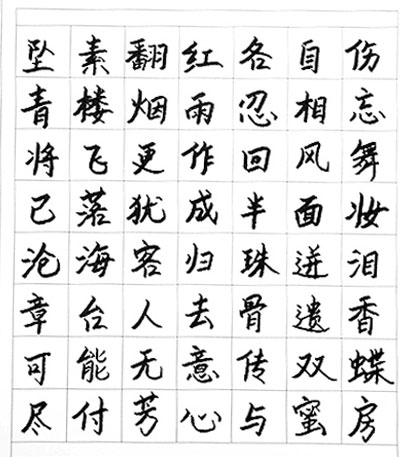 坠素翻红各自伤
青楼烟雨忍相忘
将飞更作回风舞
已落犹成半面妆
沧海客归珠迸泪
章台人去骨遗香
可能无意传双蝶
尽付芳心与蜜房